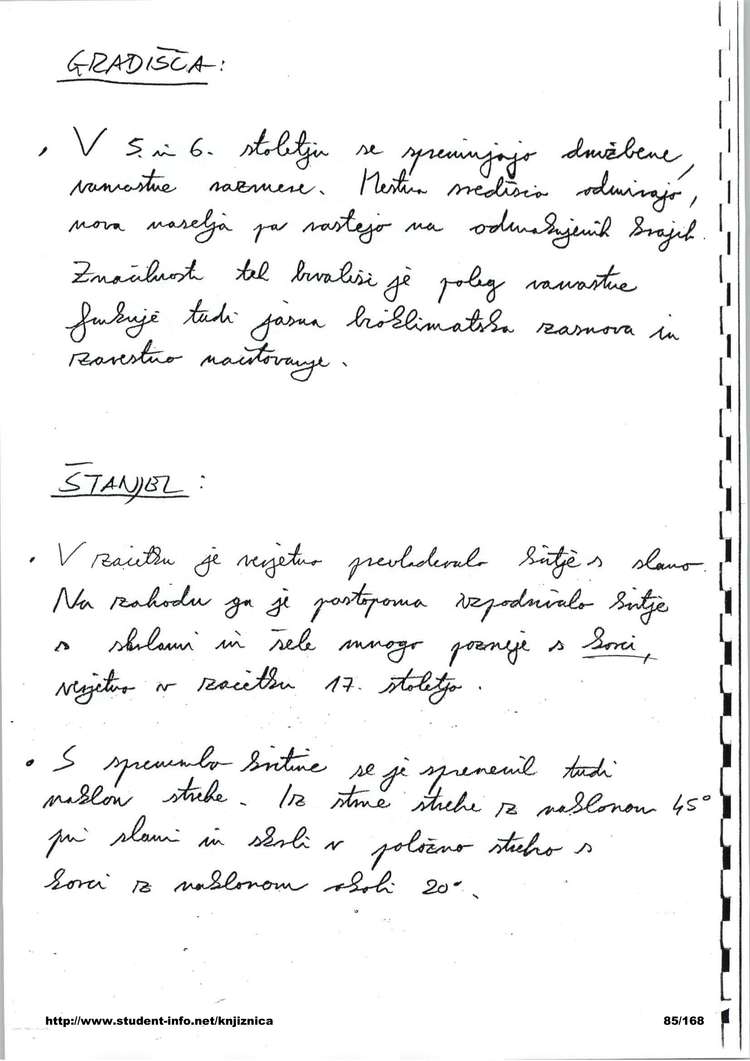 GRADIŠČA:
V 5. in 6. stoletju se spreminjajo družbene,
varnostne razmere. Mestna središča odmirajo,
nova naselja pa rastejo na odmaknjenih krajih.
Značilnost teh bivališč je poleg varnostne
funkcije tudi jasna bioklimatska zasnova in
zavestno načrtovanje.
ŠTANJEL:
• V začetku je verjetno prevladovalo kritje s slamo.
Na zahodu ga je postopoma izpodrivalo kritje
s skrlami in šele mnogo pozneje s korci,
verjetno v začetku 17. stoletja.
• S spremembo kritine se je spremenil tudi
naklon strehe. Iz strme strehe iz naklonom 45°
pri slami in skrli v položno streho s
korci iz naklonom okoli 20°.
http://www.student-info.net/knjiznica
85/168